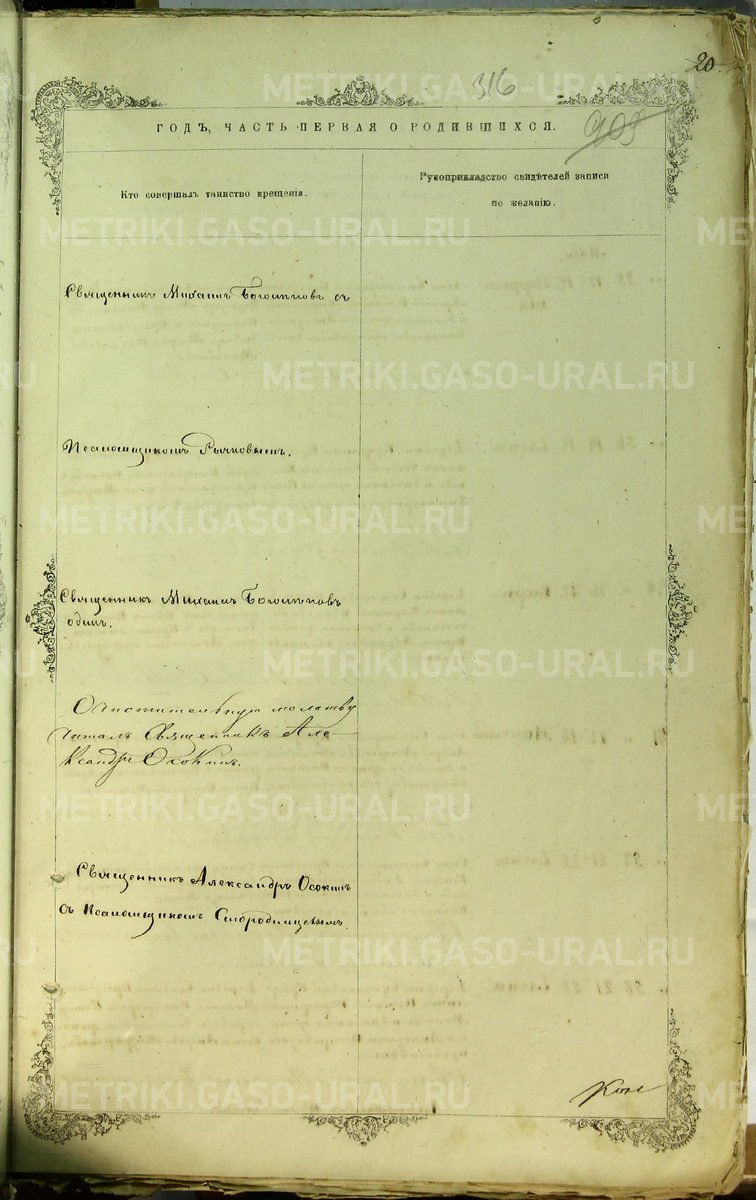 20
316
ГОДЪ, ЧАСТЬ ПЕРВАЯ О РОДИВШИХСЯ.
Кто совершалъ таинство крещенія.
Рукоприкладство свидѣтелей записи
по желанію.
Священникъ Михаилъ съ
Псаломщикомъ Рычковымъ.
Священникъ Михаилъ
одинъ.
Очистительную молитву
читалъ Священникъ Але-
ксандръ Осокинъ.
Священникъ Александръ Осокинъ
съ Псаломщикомъ Смородинцевымъ.
METRIKI.GASO-URAL.RU